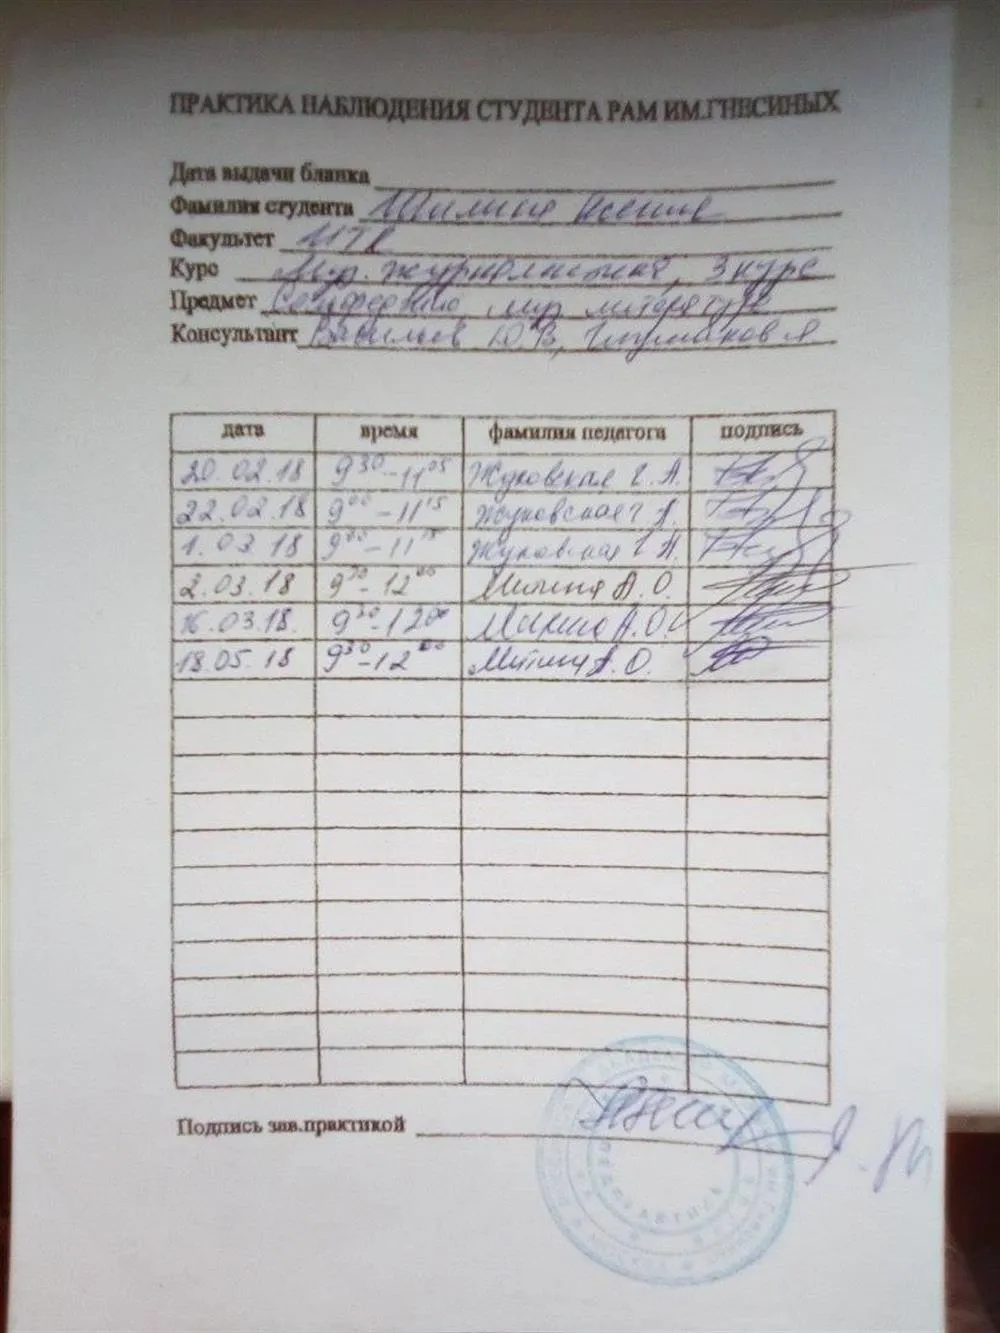 ПРАКТИКА НАБЛЮДЕНИЯ СТУДЕНТА РАМ ИМ.ГНЕСИНЫХ
Дата выдачи бланка
Фамилия студента Ксения
Факультет ИТК
Курс Муз. журналистика, 3 курс
Предмет Сольфеджио, муз литература
Консультант Васильев Ю.В,
дата время фамилия педагога подпись
20.02.18 9³⁰-11⁰⁵ Жуковская Г.А.
22.02.18 9⁰⁰-11¹⁵ Жуковская Г.А.
1.03.18 9⁰⁰-11¹⁵ Жуковская Г.А.
2.03.18 9³⁰-12⁰⁰ Митина А.О.
16.03.18. 9³⁰-12⁰⁰ Митина А.О.
18.05.18 9³⁰-12⁰⁰ Митина А.О.
Подпись зав.практикой